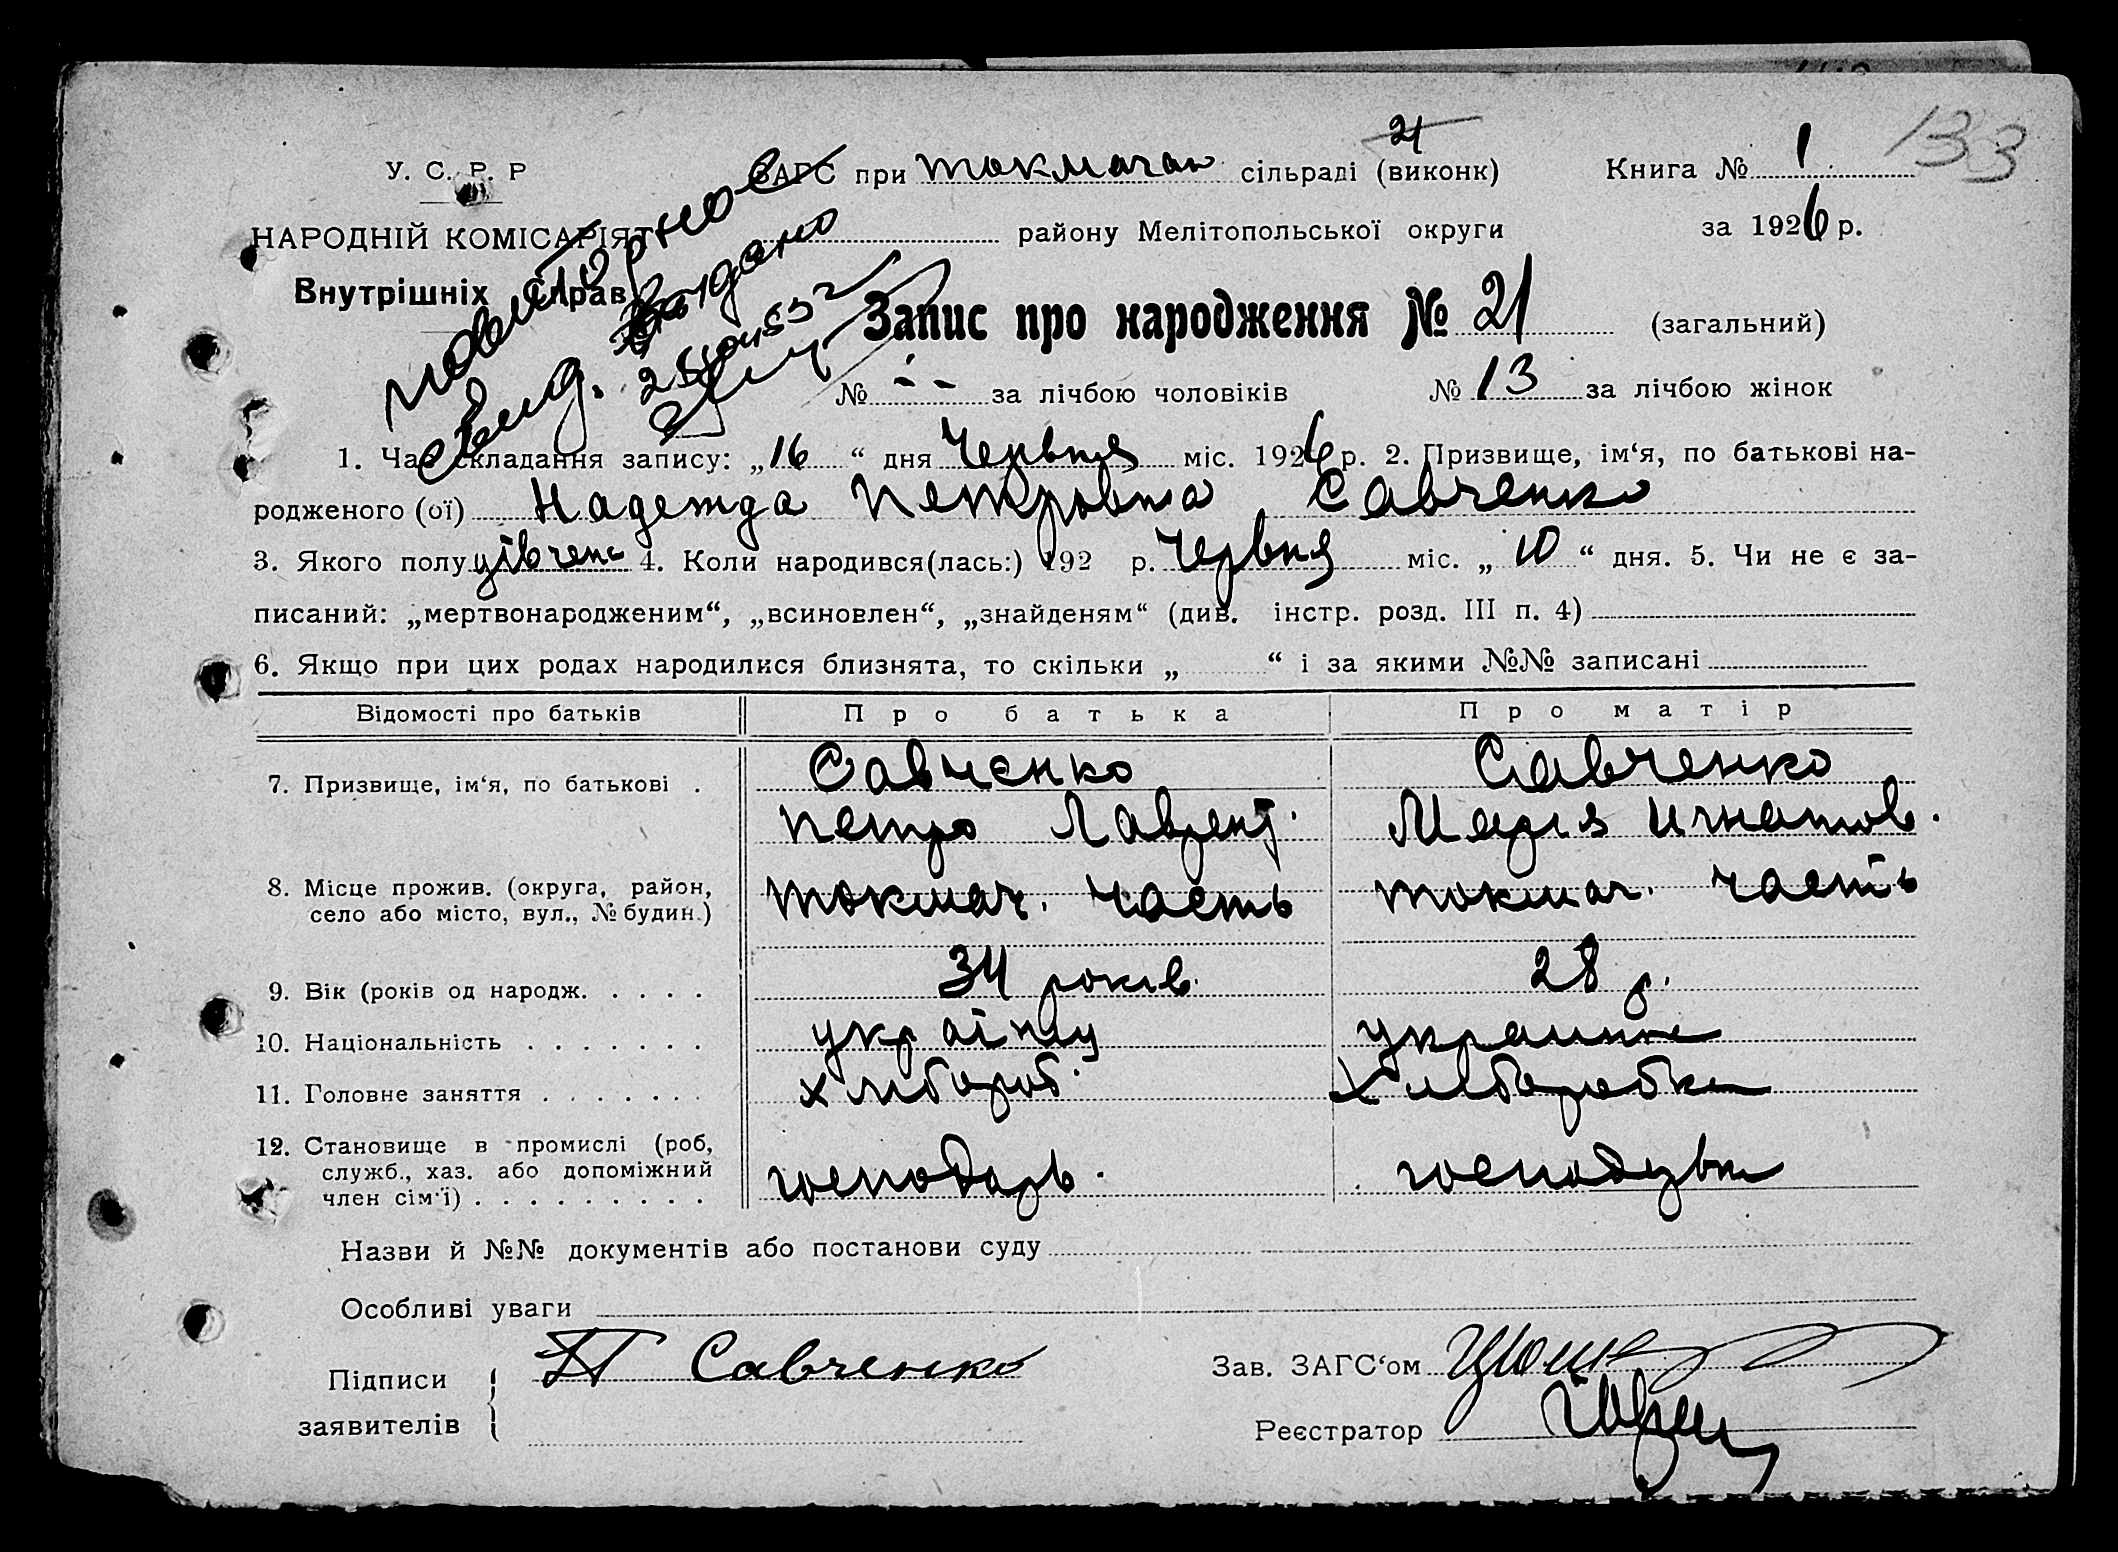 133
21
У. С. Р. Р ЗАГС при Токмачан сільраді (виконк) Книга № 1
НАРОДНІЙ КОМІСАРІЯТ району Мелітопольської округи за 1926 р.
Внутрішніх Справ
повторное
свид. выдано
Запис про народження № 21 (загальний)
№ - - за лічбою чоловіків № 13 за лічбою жінок
1. Час складання запису: „16“ дня Червня міс. 1926 р. 2. Призвище, ім‘я, по батькові на-
родженого (ої) Надежда Петровна Савченко
3. Якого полу дівчена 4. Коли народився(лась:) 192 р. Червня міс. „10“ дня. 5. Чи не є за-
писаний: „мертвонародженим“, „всиновлен“, „знайденям“ (див. інстр. розд. III п. 4)
6. Якщо при цих родах народилися близнята, то скільки „ “ і за якими №№ записані
Відомості про батьків Про батька Про матір
7. Призвище, ім‘я, по батькові . Савченко Савченко
Петро Лаврент. Мария Игнатов.
8. Місце прожив. (округа, район, Токмач. часть Токмач. часть
село або місто, вул., № будин.)
9. Вік (років од народж. . . . . 34 років. 28 р.
10. Національність . . . . . . . україну украинка
11. Головне заняття . . . . . . . хлібороб. Хліборобка
12. Становище в промислі (роб, господарь. господарка
служб., хаз. або допоміжний
член сім‘ї) . . . . . . . . .
Назви й №№ документів або постанови суду
Особливі уваги
Підписи П Савченко Зав. ЗАГС‘ом
заявителів Реєстратор